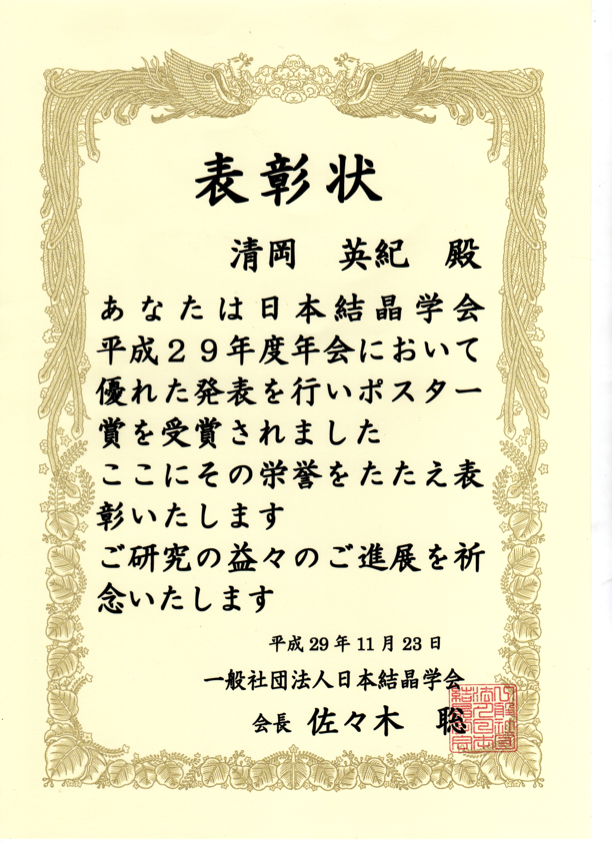 表彰状
清岡　英紀　殿
あなたは日本結晶学会
平成２９年度年会において
優れた発表を行いポスター
賞を受賞されました
ここにその栄誉をたたえ表
彰いたします
ご研究の益々のご進展を祈
念いたします
平成29年11月23日
一般社団法人日本結晶学会
会長 佐々木　聡